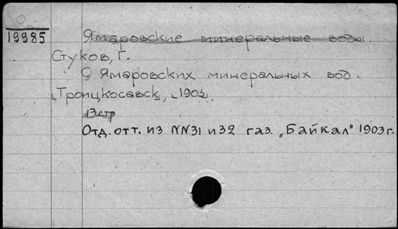 19985
Ямаровские минеральные воды.
Стуков, Г.
О Ямаровских минеральных вод.
Троицкосавск, 1903.
13 стр
Отд. отт. из NN31 и 32 газ. „Байкал" 1903 г.